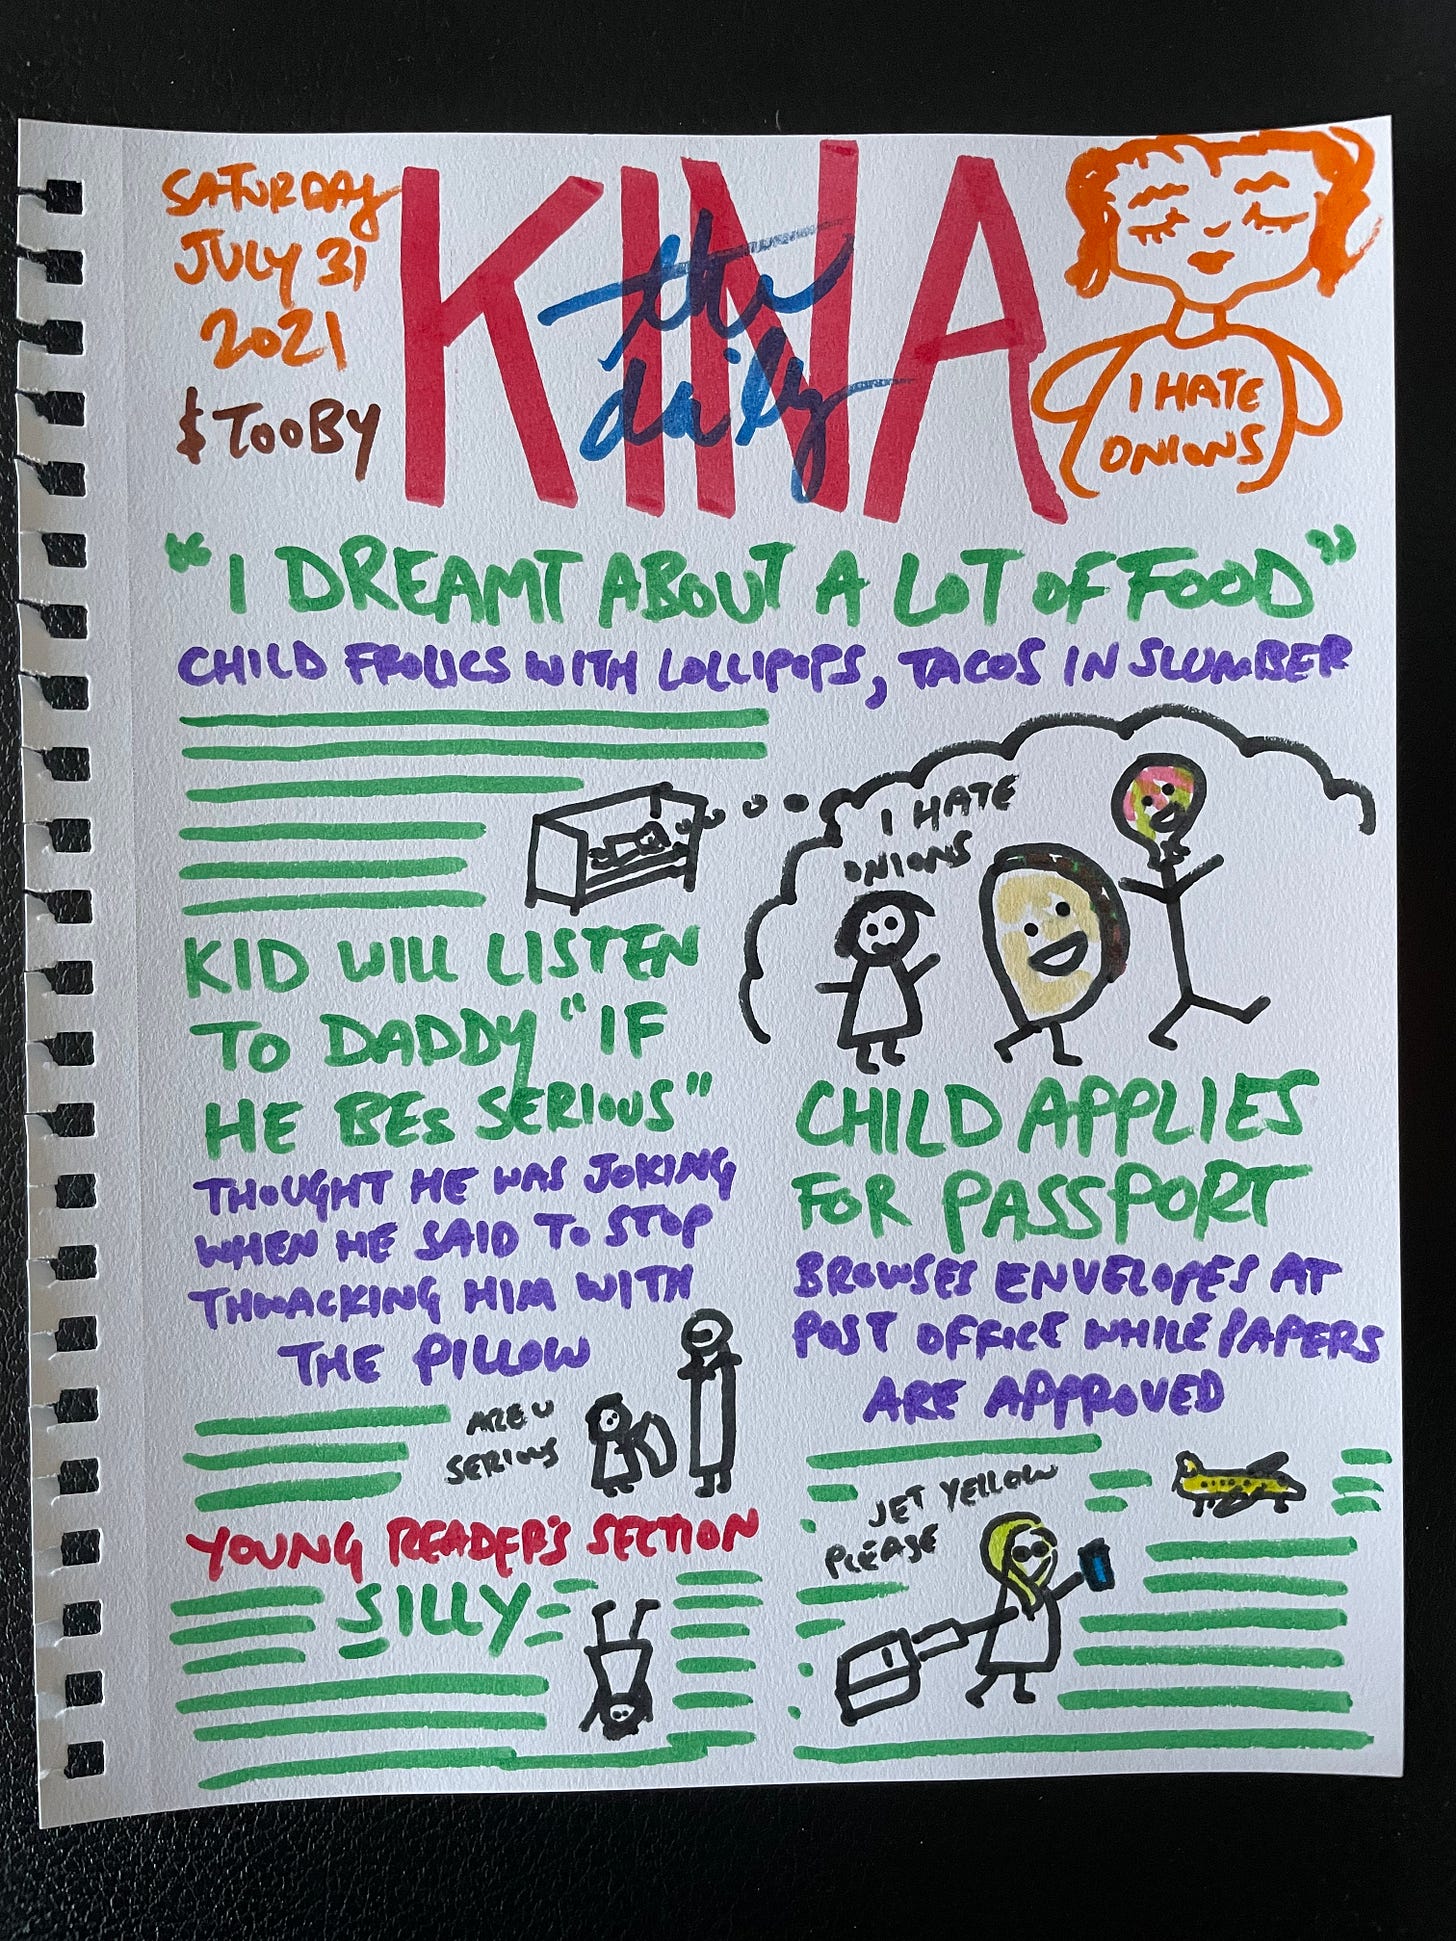 SATURDAY
JULY 31
2021
$TOOBY
KINA
the
daily
I HATE
ONIONS
"I DREAMT ABOUT A LOT OF FOOD"
CHILD FROLICS WITH LOLLIPOPS, TACOS IN SLUMBER
I HATE
ONIONS
KID WILL LISTEN
TO DADDY "IF
HE BES SERIOUS"
THOUGHT HE WAS JOKING
WHEN HE SAID TO STOP
THWACKING HIM WITH
THE PILLOW
ARE U
SERIOUS
CHILD APPLIES
FOR PASSPORT
BROWSES ENVELOPES AT
POST OFFICE WHILE PAPERS
ARE APPROVED
JET YELLOW
PLEASE
YOUNG READER'S SECTION
SILLY